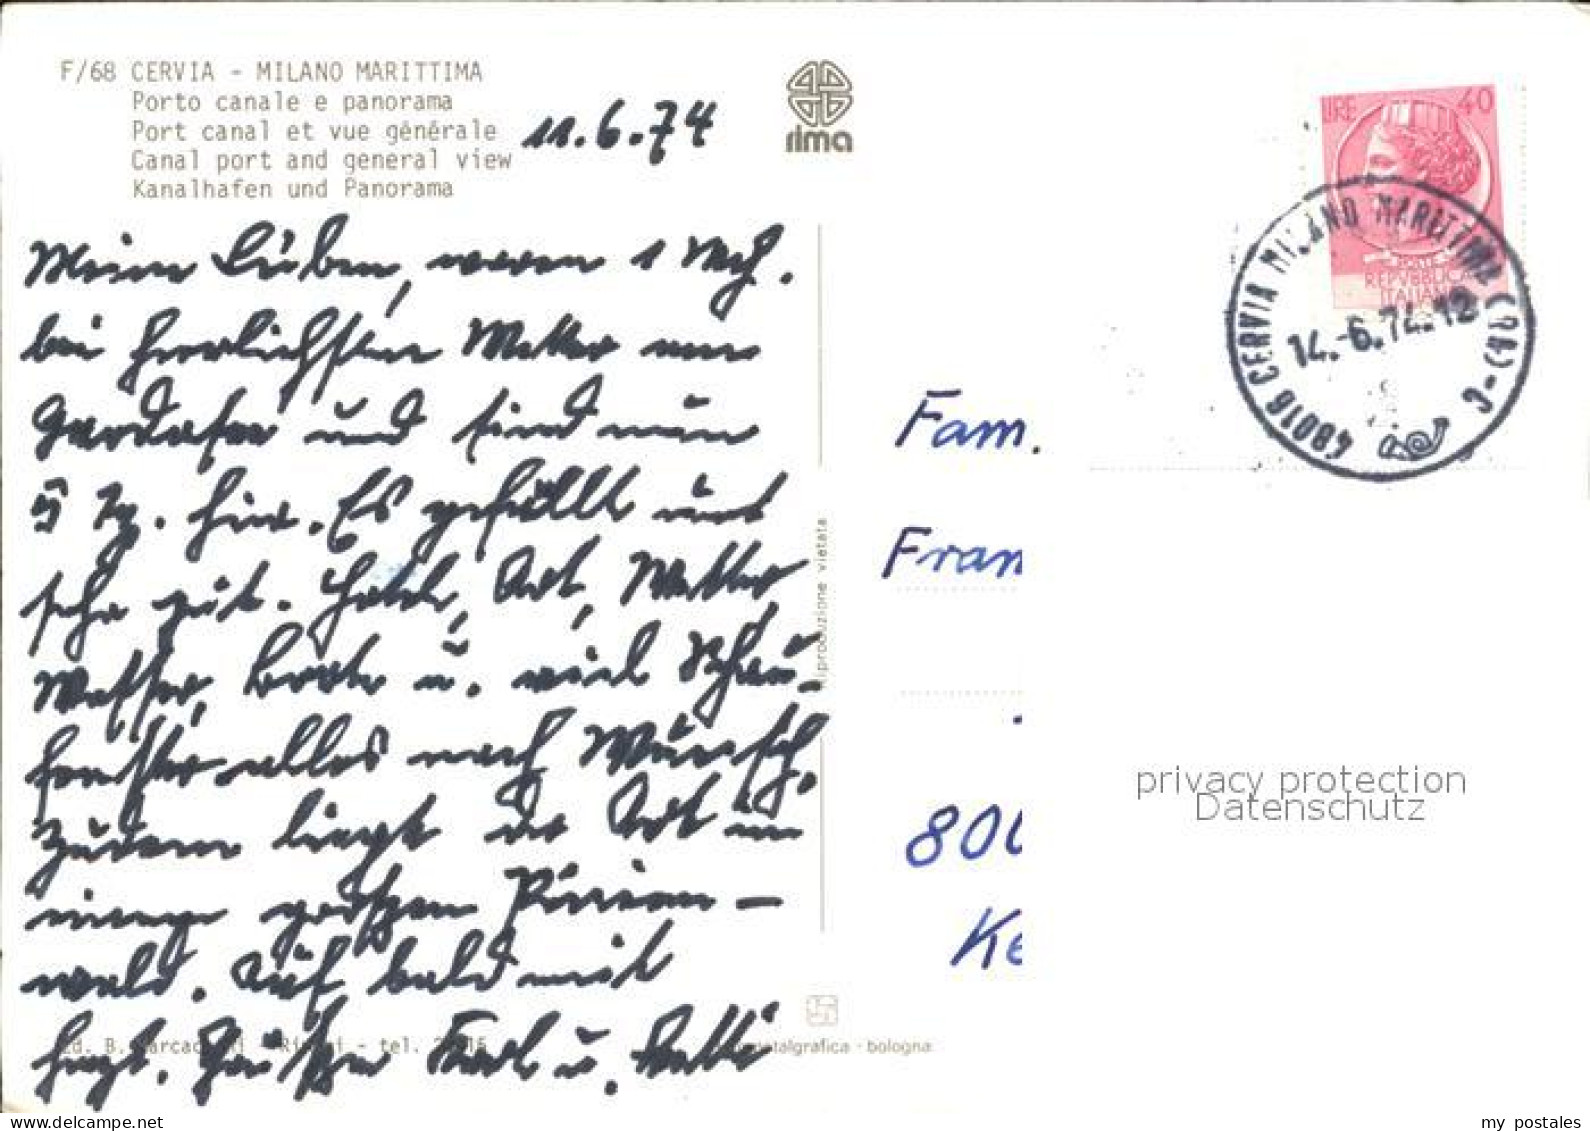 F/68 CERVIA - MILANO MARITTIMA
Porto canale e panorama
Port canal et vue générale
Canal port and general view
Kanalhafen und Panorama
11.6.74
rima
LIRE 40
POSTE
REPVBBLICA
ITALIANA
48016 CERVIA MILANO MARITTIMA (RA) - C
14.-6.74.12
Meine Lieben, waren 1 Wch.
bei herrlichsten Wetter am
Gardasee und sind nun
5 Tg. hier. Es gefällt uns
sehr gut. Hotel, Ort, Wetter
Wasser, Boote u. viel Schau-
fenster alles nach Wunsch.
Zudem liegt der Ort in
einem großen Pinien-
wald. Auf bald mit
herzl. Grüßen Karl u.
Fam.
Fran
800
Ke
Riproduzione vietata
privacy protection
Datenschutz
- tel.
- bologna
my postales